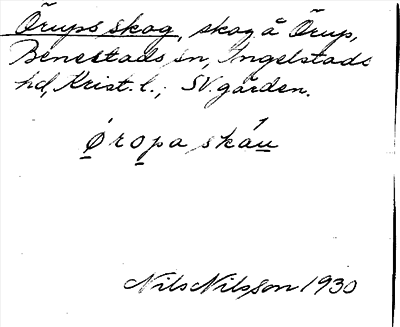 Örups skog, skog å Örup,
Benestads sn, Ingelstads
hd, Krist. l.; SV. gården.
Ǿropa skáu
Nils Nilsson 1930